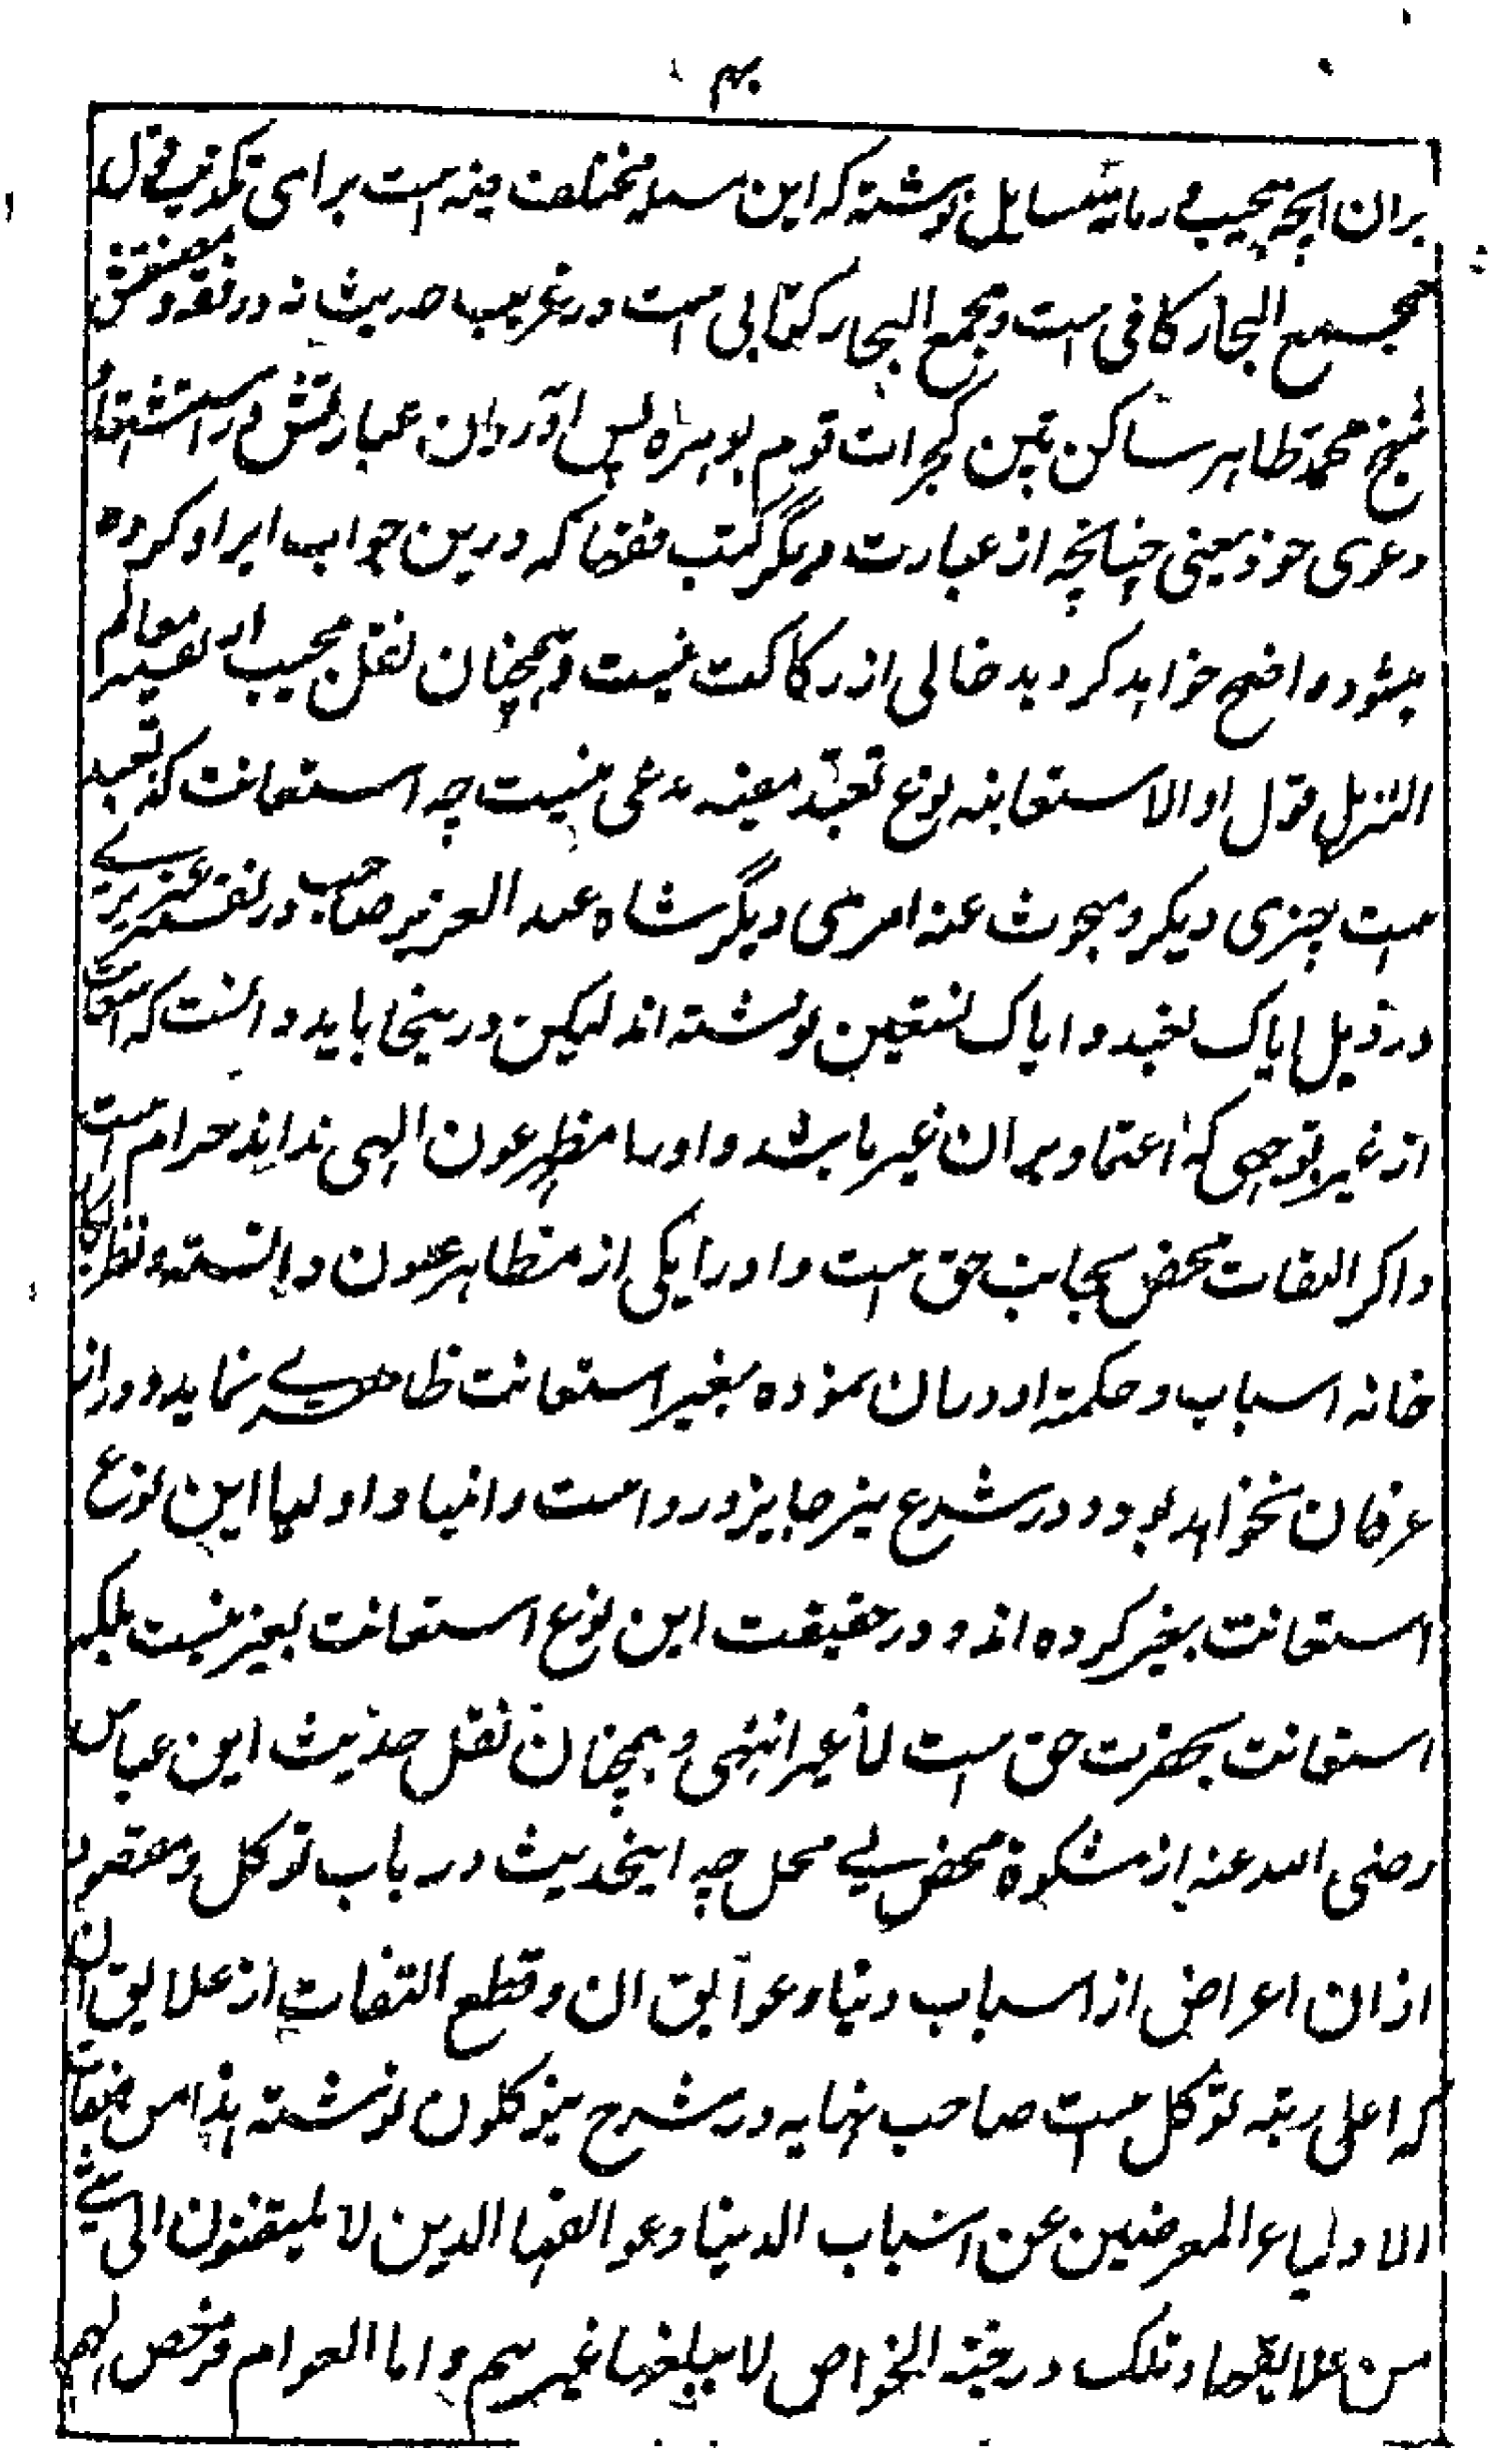 ۴
بران انچه مجیب در مایة مسایل نوشته که این مسئله مختلف فیه است برای تکذیب قول
مجمع البحار کافی است و مجمع البحار کتابی است در غریب حدیث نه در فقه و مصنفش
شیخ محمد طاهر ساکن پتن گجرات قوم بوهره پس آوردن عبارتش در استشهاد
دعوی خود یعنی چنانچه از عبارت دیگر کتب فقها که درین جواب ایراد کرده
میشود واضح خواهد گردید خالی از رکاکت نیست و همچنان نقل مجیب از تفسیر معالم
التنزیل قول او الاستعانة نوع تعبد معینه مدعی نیست چه استعانت که تعبد
است چیزی دیگر و مبحوث عنه امری دیگر شاه عبد العزیز صاحب در تفسیر عزیزی
در ذیل ایاک نعبد و ایاک نستعین نوشته اند لیکن درینجا باید دانست که استعانت
از غیر بوجهی که اعتماد بران غیر باشد و او را مظهر عون الهی نداند حرام است
و اگر التفات محض بجانب حق است و او را یکی از مظاهر عون دانسته و نظر بکار
خانه اسباب و حکمت او دران نموده بغیر استعانت ظاهری نماید دور از
عرفان نخواهد بود و در شرع نیز جایز و روا است و انبیا و اولیا این نوع
استعانت بغیر کرده اند و در حقیقت این نوع استعانت بغیر نیست بلکه
استعانت بحضرت حق است لا غیر انتهی و همچنان نقل حدیث ابن عباس
رضی الله عنه از مشکوة محض بی محل چه اینحدیث در باب توکل و مقصود
ازان اعراض از اسباب دنیا و عوایق ان و قطع التفات از علایق ان
که اعلی رتبه توکل است صاحب نهایه در شرح یتوکلون نوشته هذا من صفات
الاولیاء المعرضین عن اسباب الدنیا و عوایقها الذین لا یلتفتون الی شی
من علایقها و تلک درجة الخواص لا یبلغها غیرهم و اما العوام فرخص لهم